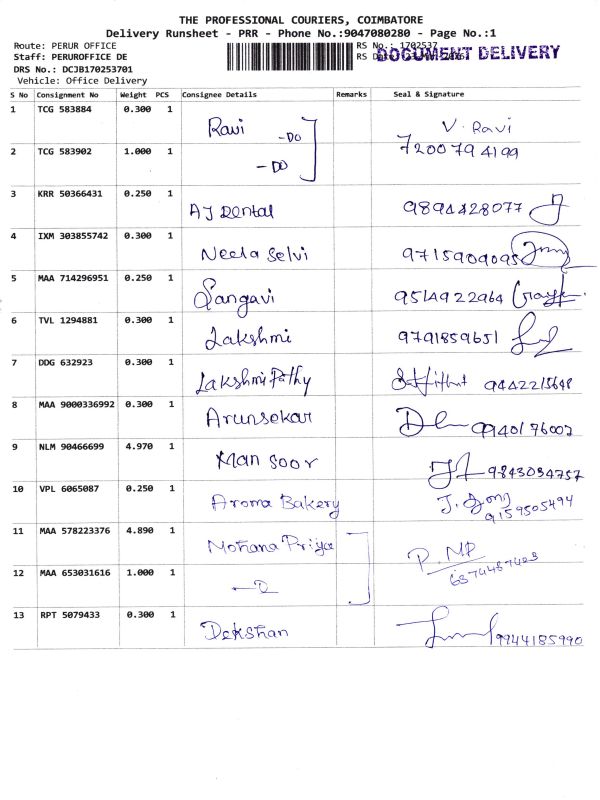 THE PROFESSIONAL COURIERS, COIMBATORE
Delivery Runsheet - PRR - Phone No.:9047080280 - Page No.:1
Route: PERUR OFFICE RS No.: 1702537
Staff: PERUROFFICE DE RS DOCUMENT DELIVERY
DRS No.: DCJB170253701
Vehicle: Office Delivery
S No Consignment No Weight PCS Consignee Details Remarks Seal & Signature
1 TCG 583884 0.300 1 Ravi -DO V. Ravi
2 TCG 583902 1.000 1 -DO 7200794199
3 KRR 50366431 0.250 1 AJ Dental 9894428077
4 IXM 303855742 0.300 1 Neela Selvi 9715909095
5 MAA 714296951 0.250 1 Sangavi 9514922964
6 TVL 1294881 0.300 1 Lakshmi 9791859651
7 DDG 632923 0.300 1 Lakshmi Pathy 9442215648
8 MAA 9000336992 0.300 1 Arunsekar 9940176002
9 NLM 90466699 4.970 1 Mansoor 9843034757
10 VPL 6065087 0.250 1 Aroma Bakery J. 9159505494
11 MAA 578223376 4.890 1 Mohana Priya P. MP
12 MAA 653031616 1.000 1 6374487423
13 RPT 5079433 0.300 1 Dekshan 9944185990